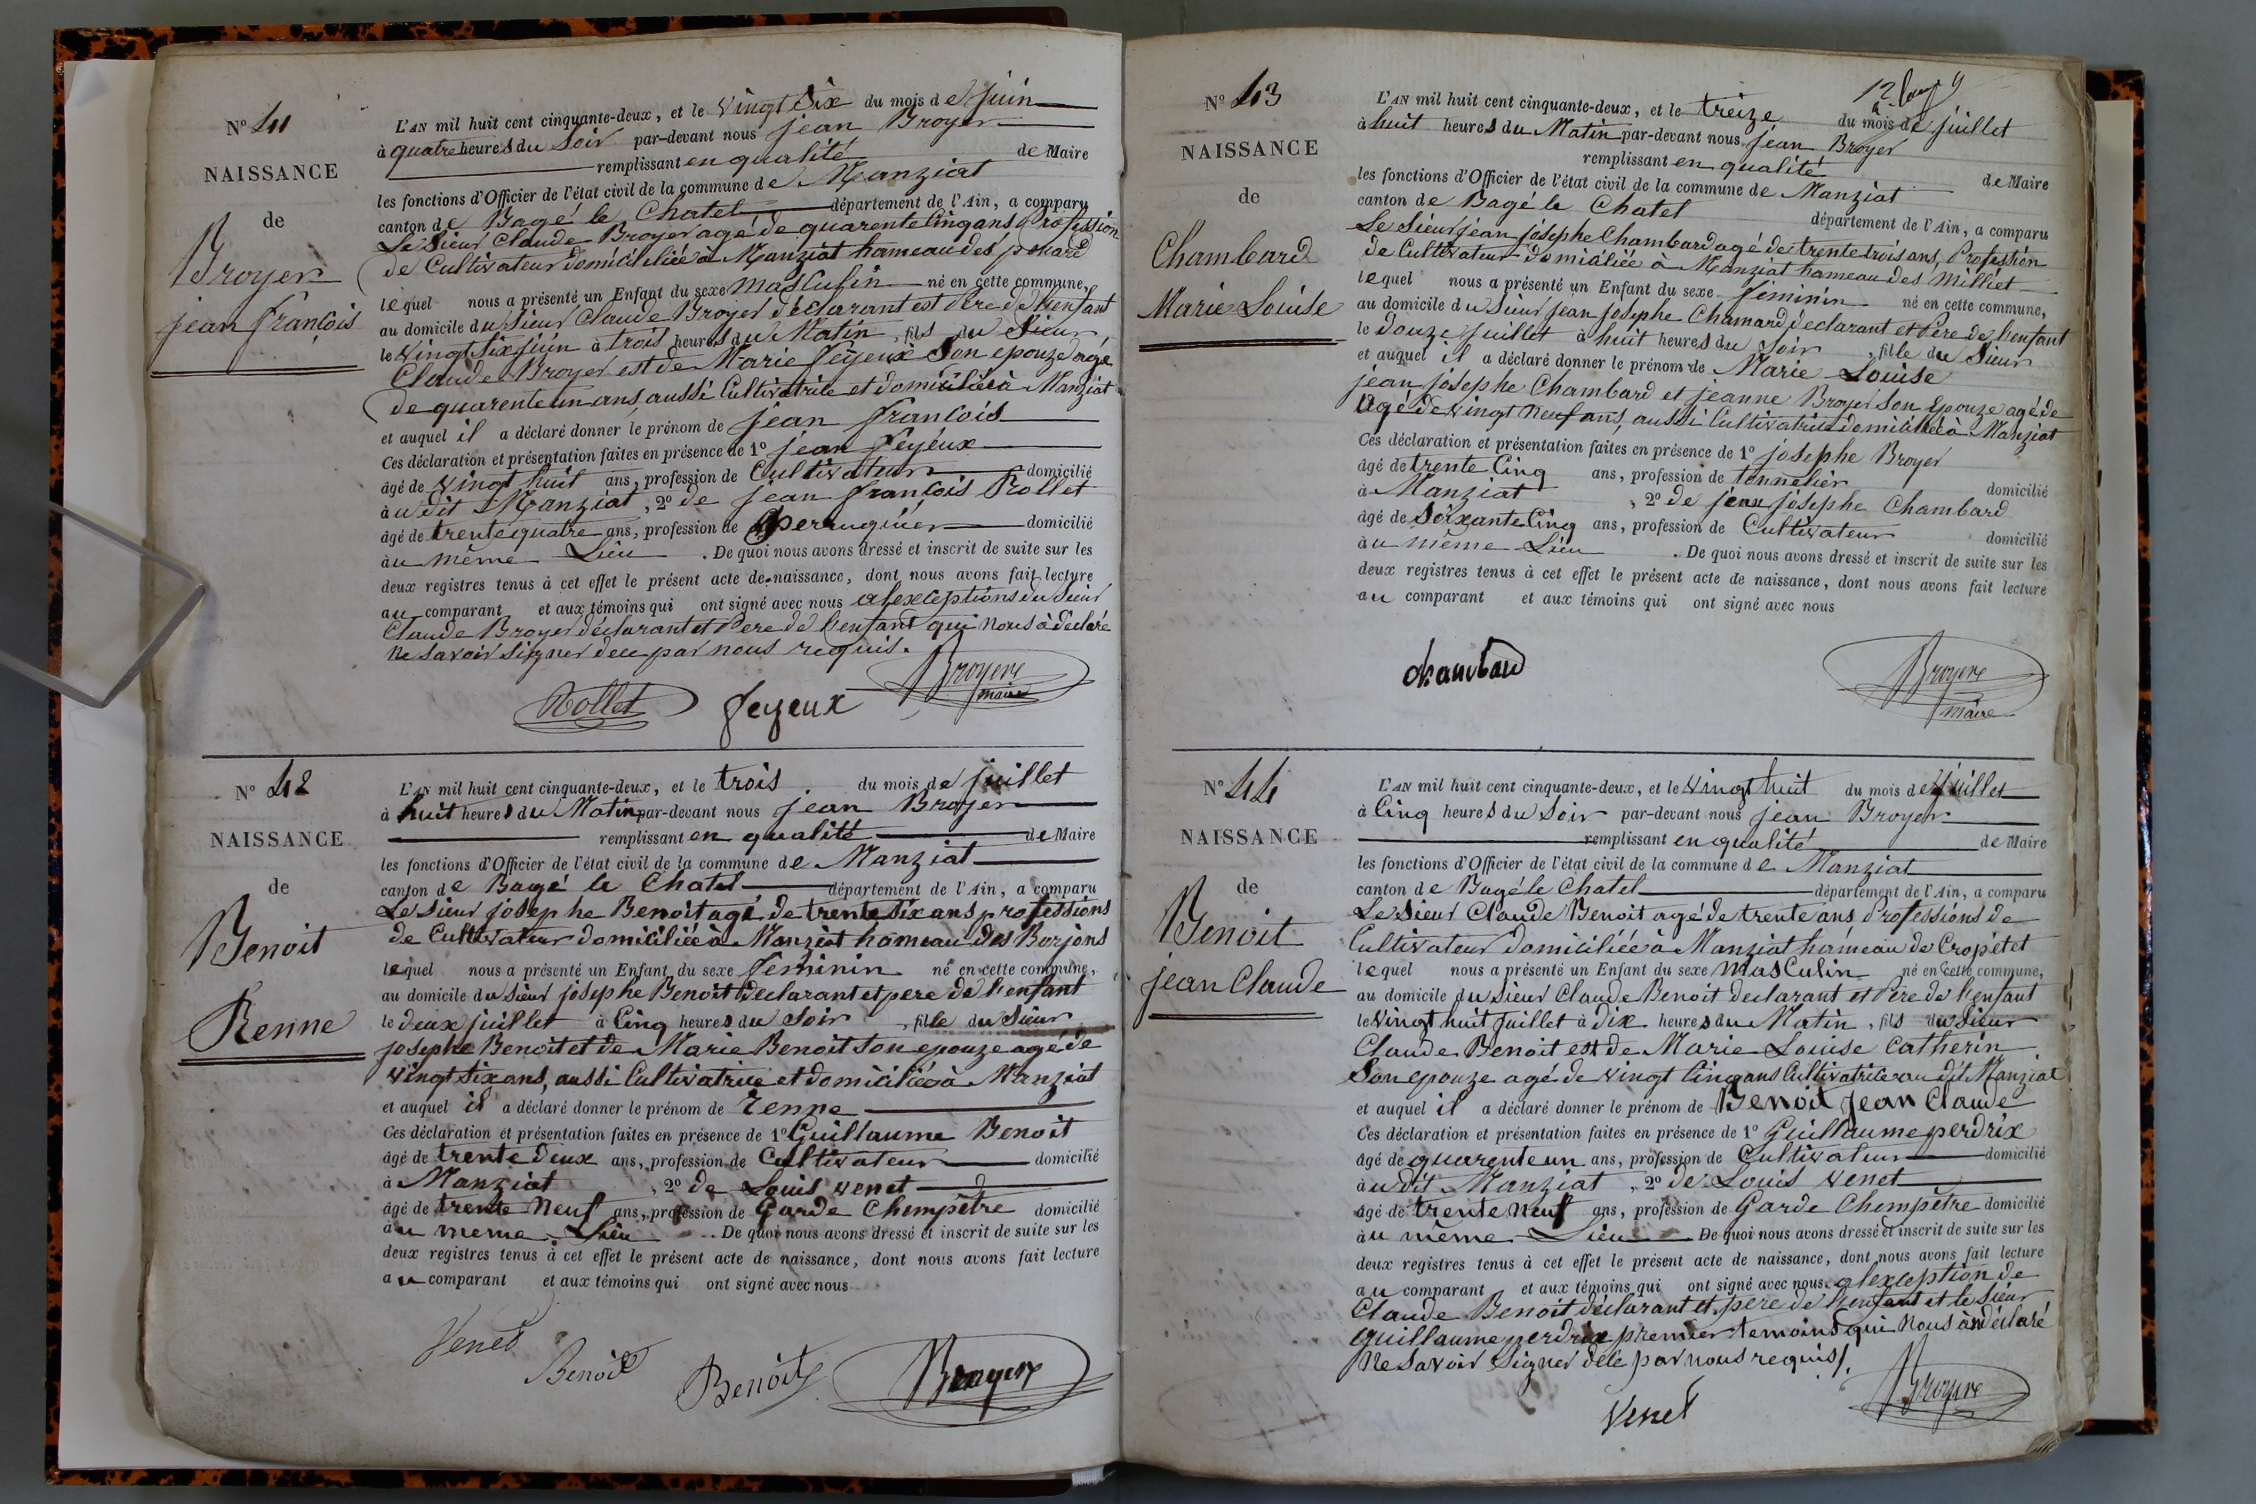 N° 41
NAISSANCE
de
Broyer
jean françois
L'AN mil huit cent cinquante-deux, et le vingt Six du mois de juin
à quatre heures du Soir par-devant nous jean Broyer
remplissant en qualité de Maire
les fonctions d'Officier de l'état civil de la commune de Manziat
canton de Bagé le Chatel département de l'Ain, a comparu
Le Sieur Claude Broyer agé de quarente Cinq ans Profession
de Cultivateur domiciliée à Manziat hameau des
lequel nous a présenté un Enfant du sexe masculin né en cette commune,
au domicile du Sieur Claude Broyer déclarant est Pere de l'enfant
le vingt Six juin à trois heures du Matin, fils du Sieur
Claude Broyer est de Marie feyeux Son epouze agé
de quarente un ans aussi Cultivatrice et domiciliée à Manziat
et auquel il a déclaré donner le prénom de jean françois
Ces déclaration et présentation faites en présence de 1° jean feyéux
âgé de vingt huit ans, profession de Cultivateur domicilié
à u dit Manziat, 2° de jean françois Rollet
âgé de trente quatre ans, profession de perruquier domicilié
à u même Lieu. De quoi nous avons dressé et inscrit de suite sur les
deux registres tenus à cet effet le présent acte de naissance, dont nous avons fait lecture
au comparant et aux témoins qui ont signé avec nous alexceptions du Sieur
Claude Broyer déclarant et Pere de l'enfant qui Nous à déclaré
ne savoir signer dece par nous requis.
Rollet feyeux Broyere
maire
N° 42
NAISSANCE
de
Benoit
Renne
L'AN mil huit cent cinquante-deux, et le trois du mois de juillet
à huit heures du Matin par-devant nous jean Broyer
remplissant en qualité de Maire
les fonctions d'Officier de l'état civil de la commune de Manziat
canton de Bagé le Chatel département de l'Ain, a comparu
Le Sieur josephe Benoit agé de trente Six ans professions
de Cultivateur domiciliée à Manziat hameau des Burjons
lequel nous a présenté un Enfant du sexe feminin né en cette commune,
au domicile du Sieur josephe Benoit declarant et pere de l'enfant
le deux juillet à Cinq heures du Soir, fille du Sieur
josephe Benoit et de Marie Benoit Son epouze agé de
vingt Six ans, aussi Cultivatrice et domiciliée à Manziat
et auquel il a déclaré donner le prénom de renne
Ces déclaration et présentation faites en présence de 1° Guillaume Benoit
âgé de trente deux ans, profession de Cultivateur domicilié
à Manziat, 2° de Louis venet
âgé de trente Neuf ans, profession de Garde Chempêtre domicilié
à u meme Lieu. De quoi nous avons dressé et inscrit de suite sur les
deux registres tenus à cet effet le présent acte de naissance, dont nous avons fait lecture
au comparant et aux témoins qui ont signé avec nous
Venet
Benoit Benoit Broyere
N° 43
NAISSANCE
de
Chambard
Marie Louise
L'AN mil huit cent cinquante-deux, et le treize du mois de juillet
à huit heures du Matin par-devant nous jean Broyer
remplissant en qualité de Maire
les fonctions d'Officier de l'état civil de la commune de Manziat
canton de Bagé le Chatel département de l'Ain, a comparu
Le Sieur jean josephe Chambard agé de trente trois ans, Profession
de Cultivateur domiciliée à Manziat hameau des Milliet
lequel nous a présenté un Enfant du sexe féminin né en cette commune,
au domicile du Sieur jean josephe Chamard declarant et Pere de l'enfant
le douze juillet à huit heures du Soir, fille du Sieur
et auquel il a déclaré donner le prénom de Marie Louise
jean josephe Chambard et jeanne Broyer Son Epouze agé de
agé de vingt Neuf ans, aussi Cultivatrice domiciliée à Manziat
Ces déclaration et présentation faites en présence de 1° josephe Broyer
âgé de trente Cinq ans, profession de tonnelier domicilié
à Manziat, 2° de jean josephe Chambard
âgé de Soixante Cinq ans, profession de Cultivateur domicilié
à u même Lieu. De quoi nous avons dressé et inscrit de suite sur les
deux registres tenus à cet effet le présent acte de naissance, dont nous avons fait lecture
au comparant et aux témoins qui ont signé avec nous
chambard Broyere
maire
N° 44
NAISSANCE
de
Benoit
jean Claude
L'AN mil huit cent cinquante-deux, et le vingt huit du mois de juillet
à Cinq heures du Soir par-devant nous jean Broyer
remplissant en qualité de Maire
les fonctions d'Officier de l'état civil de la commune de Manziat
canton de Bagé le Chatel département de l'Ain, a comparu
Le Sieur Claude Benoit agé de trente ans Professions de
Cultivateur domiciliée à Manziat hameau de Cropétet
lequel nous a présenté un Enfant du sexe masculin né en cette commune,
au domicile du Sieur Claude Benoit declarant et Pere de l'enfant
le vingt huit juillet à dix heures du Matin, fils du Sieur
Claude Benoit est de Marie Louise Catherin
Son epouze agé de vingt Cinq ans Cultivatrice au dit Manziat
et auquel il a déclaré donner le prénom de Benoit jean Claude
Ces déclaration et présentation faites en présence de 1° Guillaume perdrix
âgé de quarente un ans, profession de Cultivateur domicilié
à u dit Manziat, 2° de Louis venet
âgé de trente neuf ans, profession de Garde Chempêtre domicilié
à u même Lieu De quoi nous avons dressé et inscrit de suite sur les
deux registres tenus à cet effet le présent acte de naissance, dont nous avons fait lecture
au comparant et aux témoins qui ont signé avec nous alexception de
Claude Benoit déclarant et pere de l'enfant et le Sieur
guillaume perdrix premier temoins qui Nous à déclaré
Ne Savoir Signer dece par nous requis.
Venet Broyere